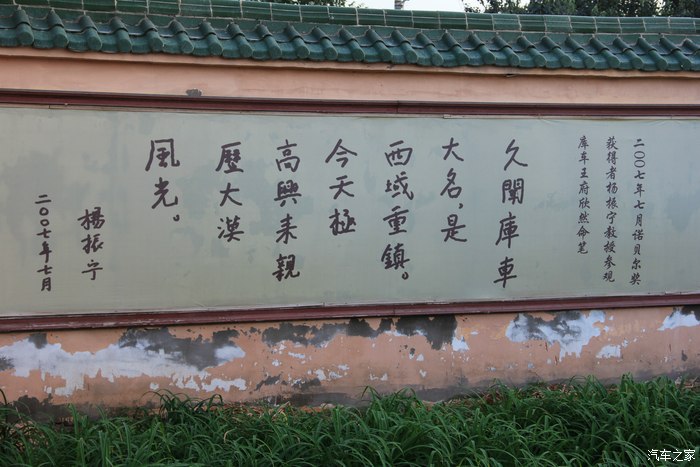 二〇〇七年七月诺贝尔奖
获得者杨振宁教授参观
库车王府欣然命笔
久聞庫車
大名,是
西域重鎮。
今天極
高興来親
歷大漠
風光。
楊振宁
二〇〇七年七月
汽车之家